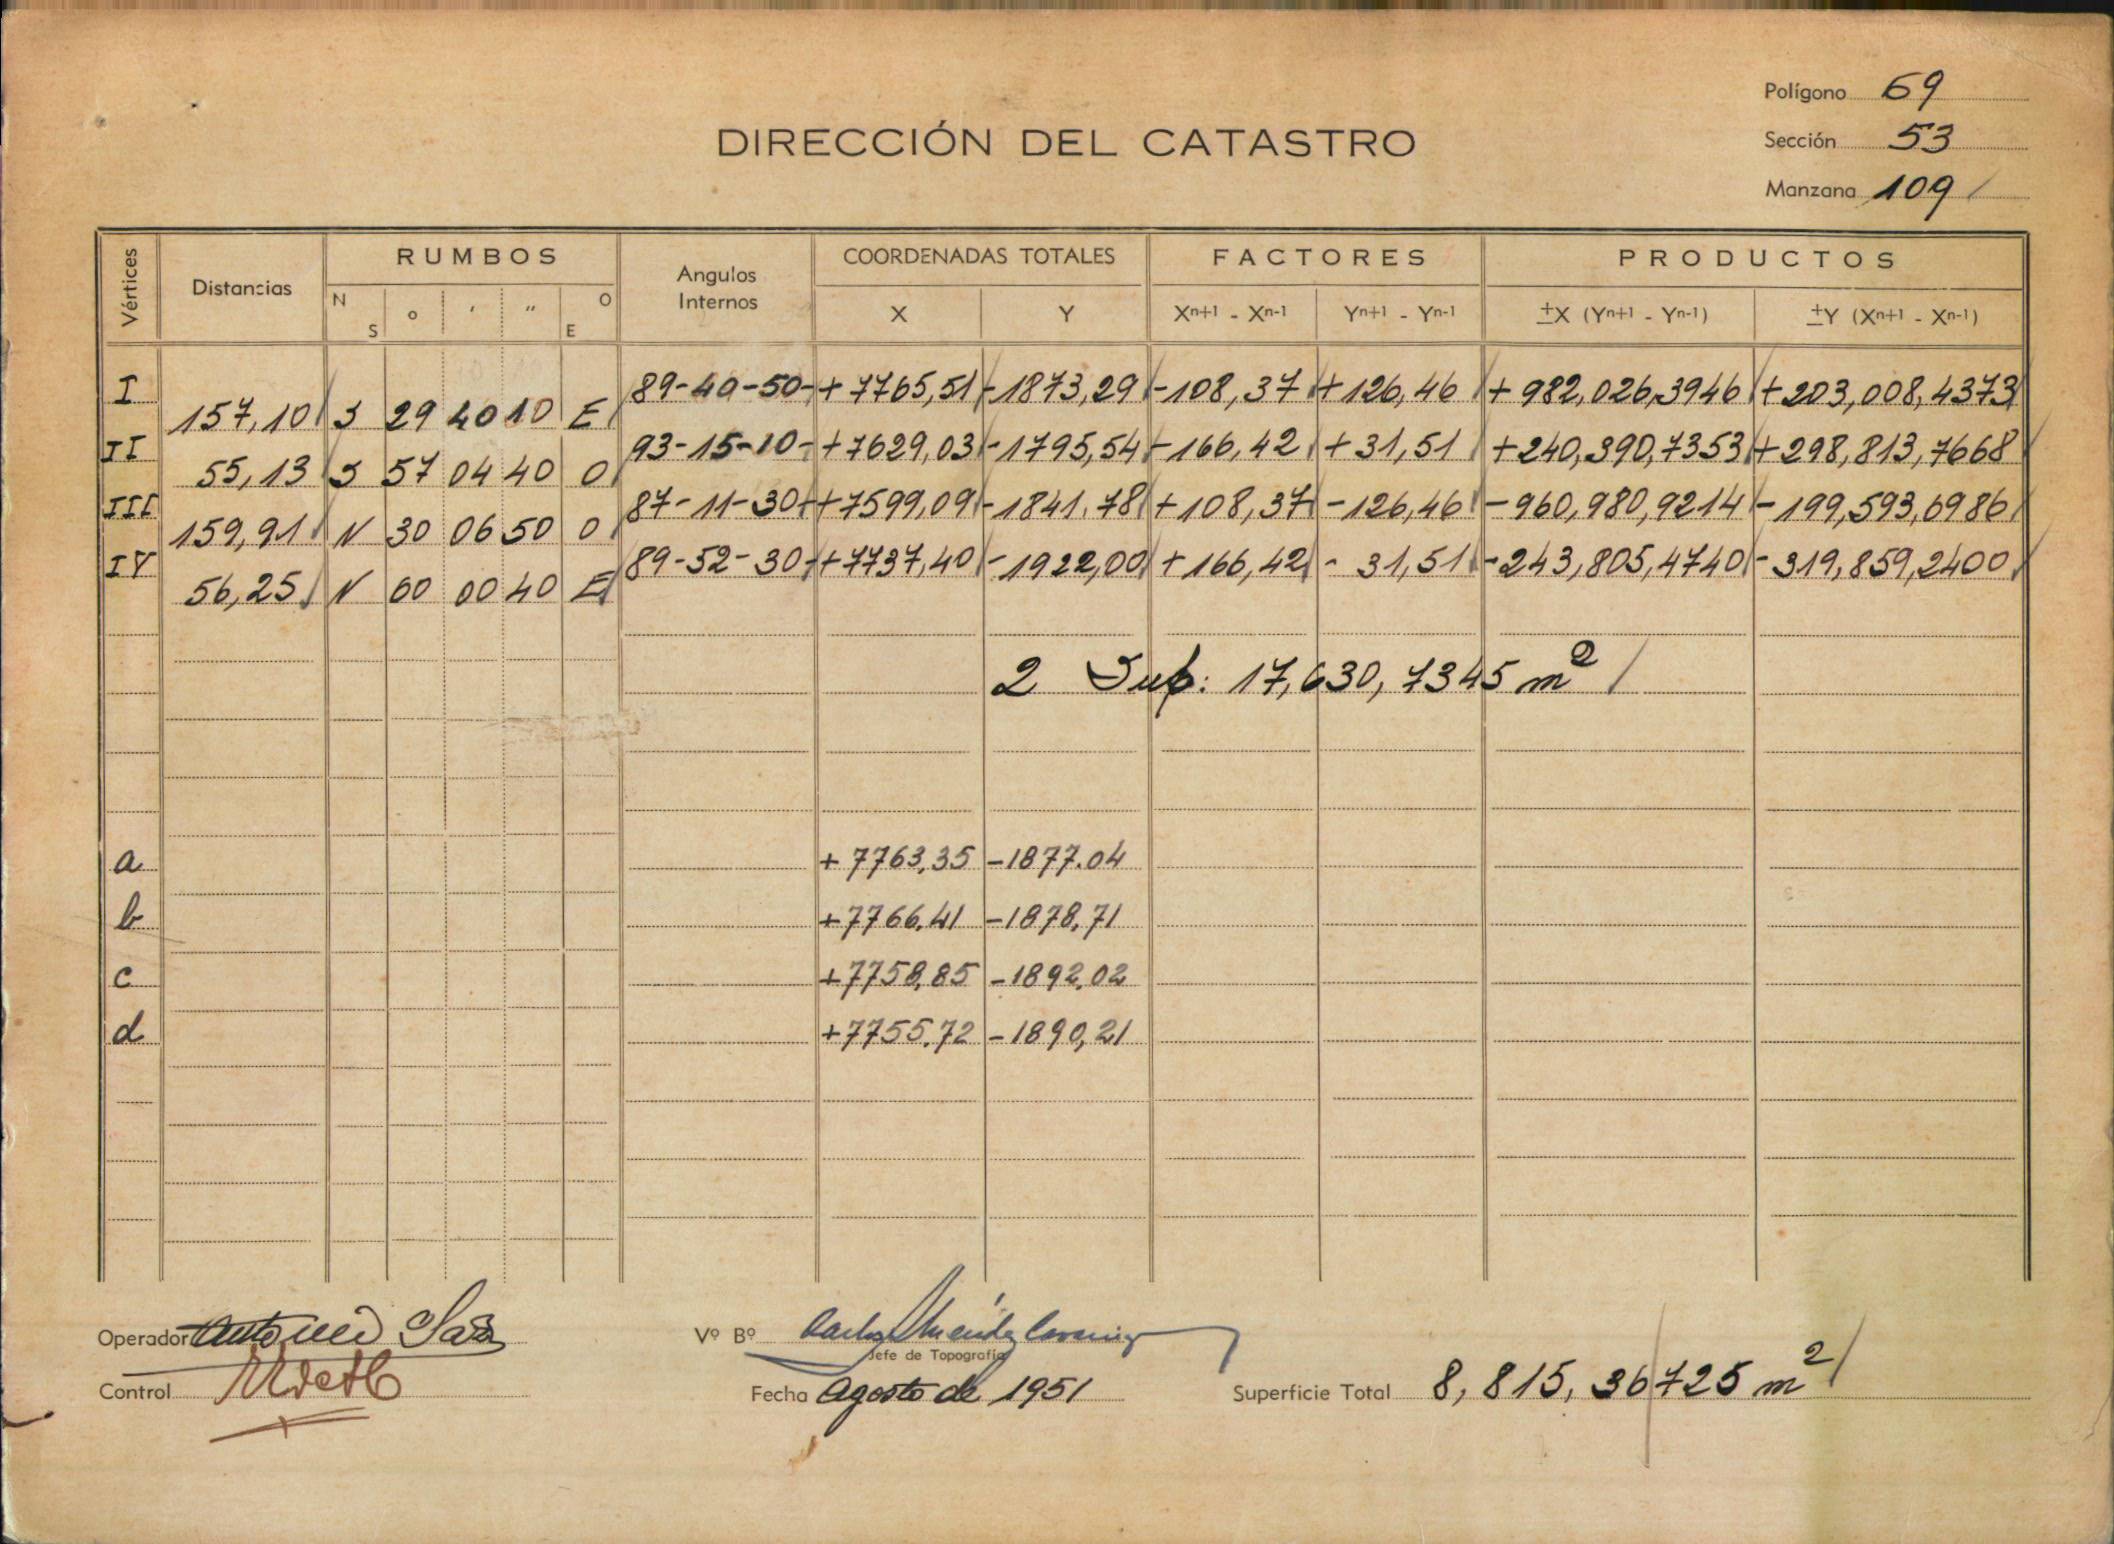 Polígono 69
DIRECCIÓN DEL CATASTRO
Sección 53
Manzana 109
Vértices Distancias RUMBOS Angulos Internos COORDENADAS TOTALES FACTORES PRODUCTOS
N S o ' " O E X Y Xn+1 - Xn-1 Yn+1 - Yn-1 ±X (Yn+1 - Yn-1) ±Y (Xn+1 - Xn-1)
I 89-40-50 +7765,51 -1873,29 -108,37 +126,46 +982,026,3946 +203,008,4373
157,10 S 29 40 10 E
II 93-15-10 +7629,03 -1795,54 -166,42 +31,51 +240,390,7353 +298,813,7668
55,13 S 57 04 40 O
III 87-11-30 +7599,09 -1841.78 +108,37 -126,46 -960,980,9214 -199,593,6986
159,91 N 30 06 50 O
IV 89-52-30 +7737,40 -1922,00 +166,42 - 31,51 -243,805,4740 -319,859,2400
56,25 N 60 00 40 E
2 Sup: 17,630,7345 m²
a +7763,35 -1877.04
b +7766,41 -1878,71
c +7758,85 -1892,02
d +7755,72 -1890,21
Operador Antonio Vº Bº Carlos Méndez
Jefe de Topografía
Control Fecha Agosto de 1951 Superficie Total 8,815,36725 m²